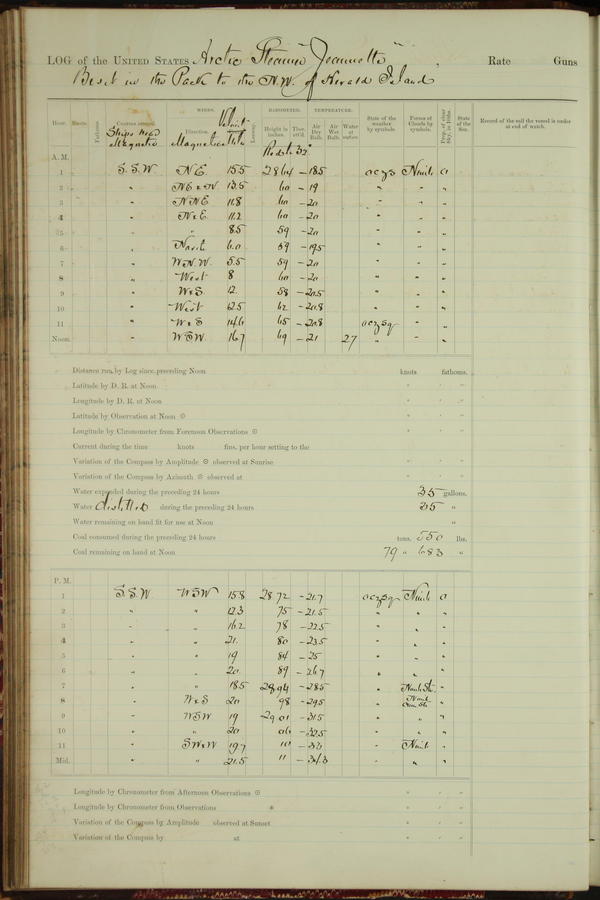 LOG of the UNITED STATES Arctic Steamer Jeannette, Rate Guns
Beset in the Pack to the N.W. of Herald Island
WINDS. Velocity BAROMETER. TEMPERATURE.
Hour. Knots. Fathoms. Courses steered. Direction. Leeway. Height in inches. Ther. att'd. Air Dry Bulb. Air Wet Bulb. Water at surface. State of the weather by symbols. Forms of Clouds by symbols. Prop. of clear Sky, in 10ths. State of the Sea. Record of the sail the vessel is under at end of watch.
Ships head Magnetic Magnetic
A. M.
1 S.S.W. N.E. 15.5 28 64 -18.5 Nimb 0
2 " 13.5 60 -19 " " "
3 " N N E 11.8 60 -20 " " "
4 " 11.2 60 -20 " " "
5 " " 8.5 59 -20 " " "
6 " North 6.0 59 -19.5 " " "
7 " W.N.W. 5.5 59 -20 " " "
8 " West 8 60 -20 " " "
9 " 12 58 -20.5 " " "
10 " West 12.5 62 -20.8 " " "
11 " 14.6 65 -20.8 " "
Noon. " WSW. 16.7 69 -21 27 " " "
Distance run, by Log since preceding Noon knots fathoms.
Latitude by D. R. at Noon ° ′ ″
Longitude by D. R. at Noon ° ′ ″
Latitude by Observation at Noon ☉ ° ′ ″
Longitude by Chronometer from Forenoon Observations ☉ ° ′ ″
Current during the time knots fms. per hour setting to the
Variation of the Compass by Amplitude ☉ observed at Sunrise ° ′ ″
Variation of the Compass by Azimuth ☉ observed at ° ′ ″
Water expended during the preceding 24 hours 35 gallons.
Water distilled during the preceding 24 hours 35 "
Water remaining on hand fit for use at Noon "
Coal consumed during the preceding 24 hours tons. 550 lbs.
Coal remaining on hand at Noon 79 " 683 "
P. M.
1 S.S.W. WSW 15.8 28 72 -21.7 Nimb 0
2 " " 12.3 75 -21.5 " " "
3 " " 16.2 78 -22.5 " " "
4 " " 21. 80 -23.5 " " "
5 " " 19 84 -25 " " "
6 " " 20. 89 -26.7 " " "
7 " " 18.5 28.94 -28.5 " "
8 " 20 98 -29.5 " "
9 " WSW 19 29 01 -31.5 " " "
10 " " 20 06 -32.5 " " "
11 " 19.7 10 -33 " Nimb "
Mid. " " 21.5 11 -34.3 " " "
Longitude by Chronometer from Afternoon Observations ☉ ° ′ ″
Longitude by Chronometer from Observations * ° ′ ″
Variation of the Compass by Amplitude observed at Sunset ° ′ ″
Variation of the Compass by at ° ′ ″